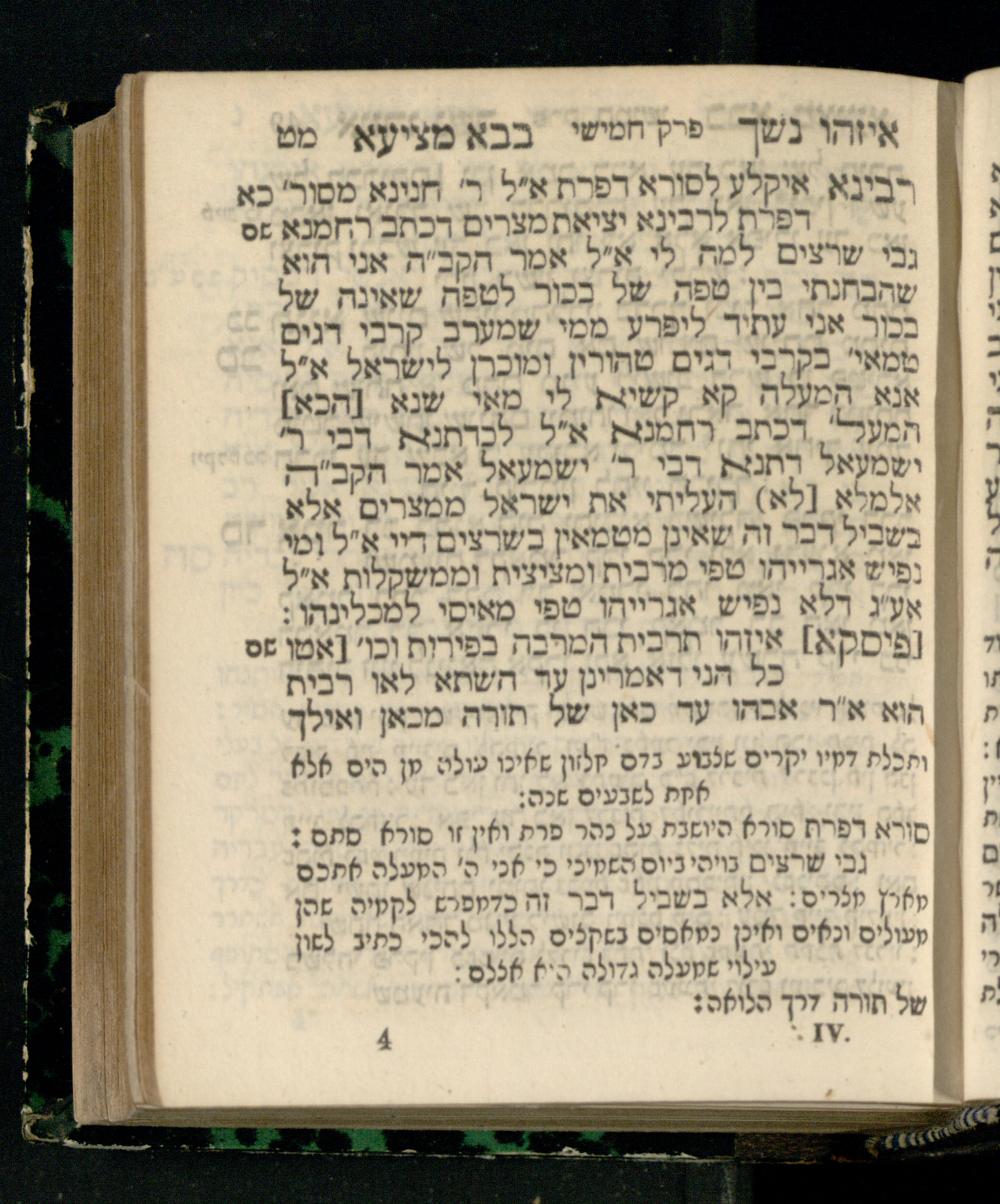 איזהו נשך פרק חמישי בבא מציעא מט
רבינא איקלע לסורא דפרת א״ל ר׳ חנינא מסור׳ כא
דפרת לרבינא יציאת מצרים דכתב רחמנא שם
גבי שרצים למה לי א״ל אמר הקב״ה אני הוא
שהבחנתי בין טפה של בכור לטפה שאינה של
בכור אני עתיד ליפרע ממי שמערב קרבי דגים
טמאי׳ בקרבי דגים טהורין ומוכרן לישראל א״ל
אנא המעלה קא קשיא לי מאי שנא [הכא]
המעל׳ דכתב רחמנא א״ל לכדתנא דבי ר׳
ישמעאל דתנא דבי ר׳ ישמעאל אמר הקב״ה
אלמלא [לא) העליתי את ישראל ממצרים אלא
בשביל דבר זה שאינן מטמאין בשרצים דיי א״ל ומי
נפיש אגרייהו טפי מרבית ומציצית וממשקלות א״ל
אע״ג דלא נפיש אגרייהו טפי מאיסי למכלינהו:
[פיסקא] איזהו תרבית המרבה בפירות וכו׳ [אטו שם
כל הני דאמרינן עד השתא לאו רבית
הוא א״ר אבהו עד כאן של תורה מכאן ואילך
ותכלת דמיו יקרים שצבוע בדם חלזון שאינו עולה מן הים אלא
אחת לשבעים שנה:
סורא דפרת סורא היושבת על נהר פרת ואין זו סורא סתם:
גבי שרצים בויהי ביום השמיני כי אני ה׳ המעלה אתכם
מארץ מצרים: אלא בשביל דבר זה כדמפרש לקמיה שהן
מעולים ונאים ואינן נמאסים בשקצים הללו להכי כתיב לשון
עילוי שמעלה גדולה היא אצלם:
של תורה דרך הלואה:
4 IV.